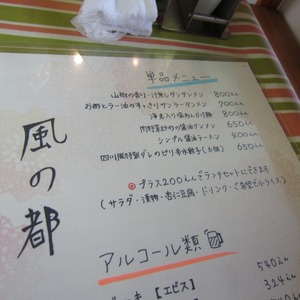 風の都
単品メニュー
山椒の香り・汁無しタンタンメン 800えん
お酢とラー油のすっきりサンラータンメン 900えん
海老入り塩あんかけ麺 800えん
肉野菜炒めの醤油タンメン 650えん
シンプル醤油ラーメン 400えん
四川風特製ダレのピリ辛水餃子(6個) 650えん
◎プラス200えんでランチセットにできます
(サラダ・漬物・杏仁豆腐・ドリンク・ご希望でライス)
アルコール類
【エビス】 540えん
324えん